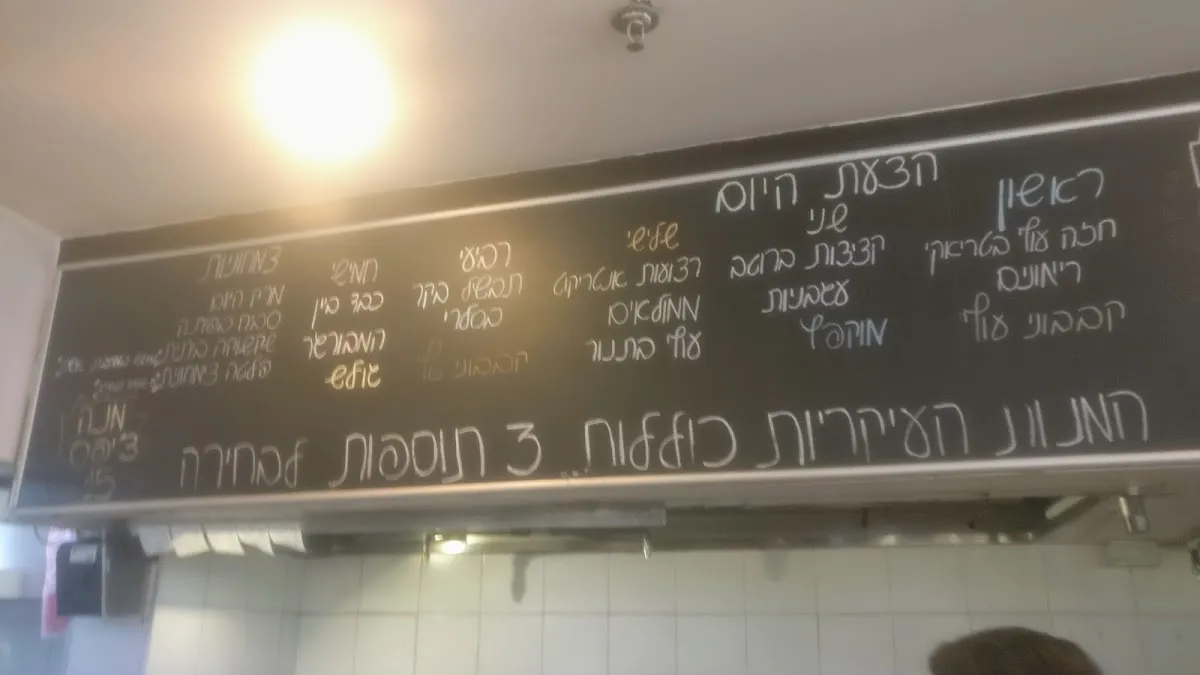 הצעת היום
ראשון
חזה עוף בטריאקי
רימונים
קבבוני עוף
שני
קציצות ברוטב
עגבניות
מוקפץ
שלישי
רצועות אנטריקוט
ממולאים
עוף בתנור
רביעי
תבשיל בקר
בסלרי
קבבוני עוף
חמישי
כבד ביין
המבורגר
גולש
צמחוניות
מרק היום
שקשוקה ברנית
פלטה צמחונית
המנות העיקריות כוללות 3 תוספות לבחירה
מנה
צ'יפס
15